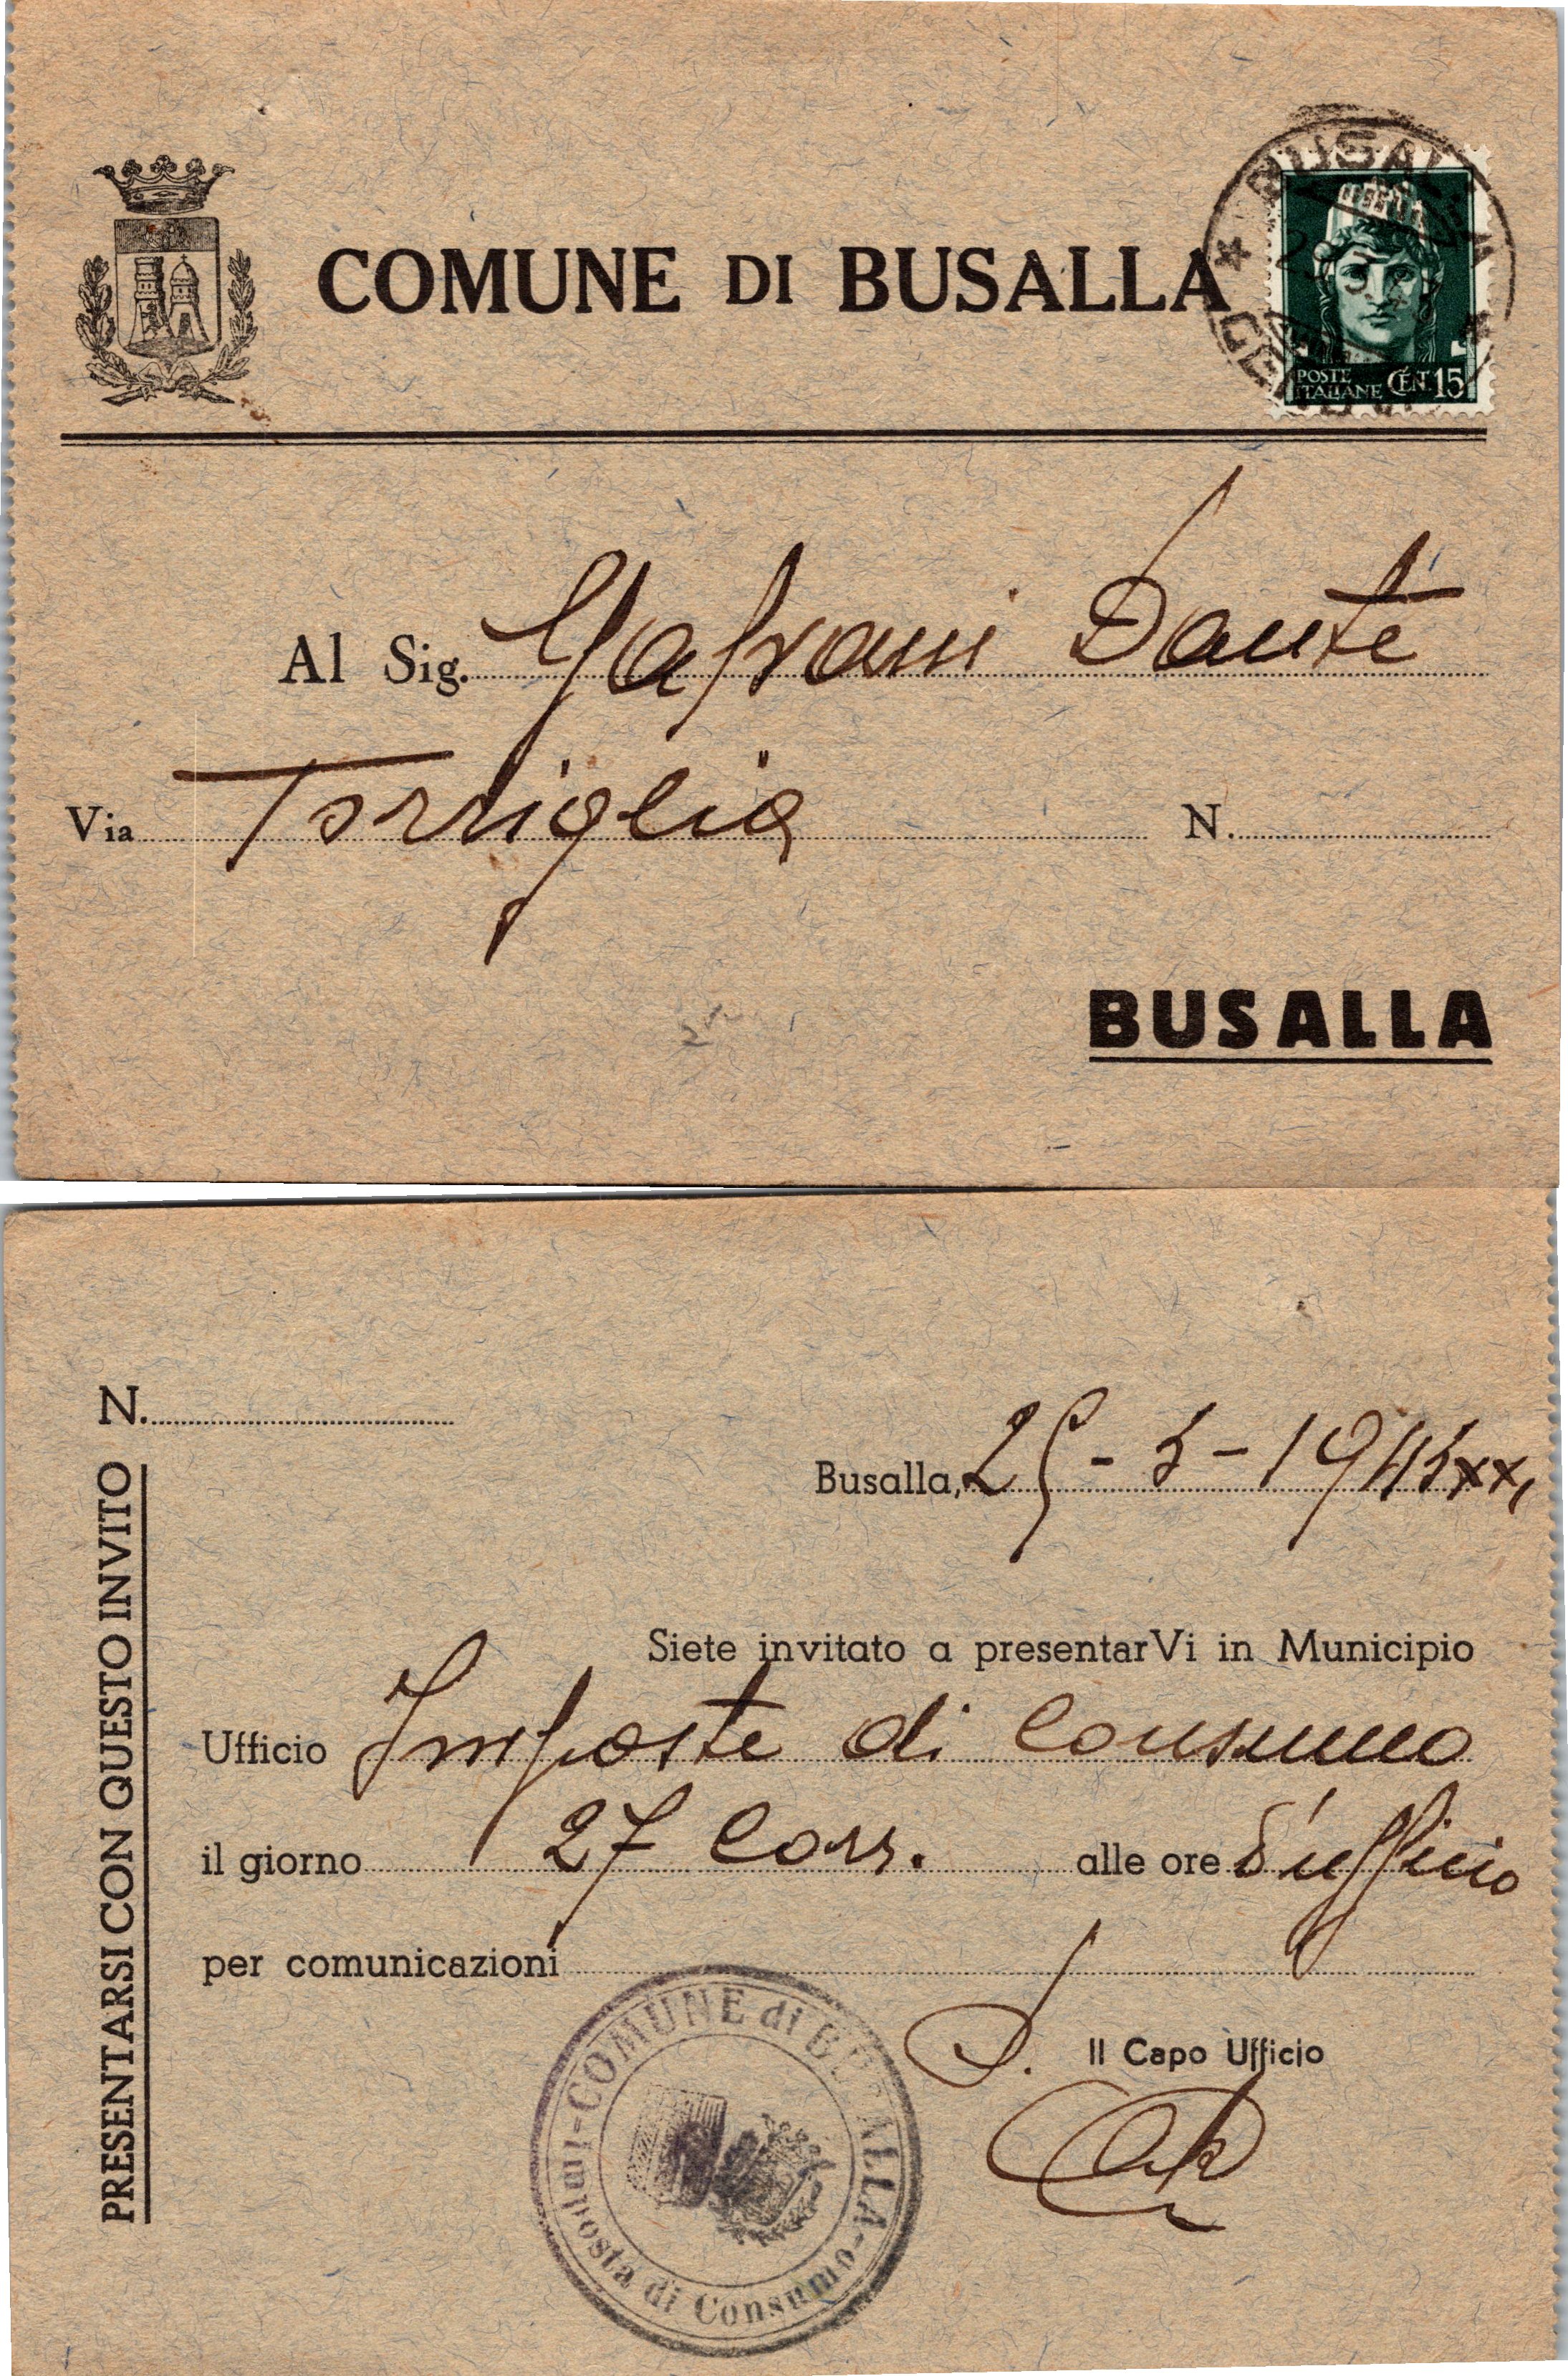 COMUNE DI BUSALLA
BUSALLA
POSTE
ITALIANE CENT. 15
Al Sig. Dante
Via Torriglia N.
BUSALLA
N.
Busalla, 25-5-1943 XXI
PRESENTARSI CON QUESTO INVITO
Siete invitato a presentarVi in Municipio
Ufficio Imposte di Consumo
il giorno 27 Corr. alle ore d'ufficio
per comunicazioni
Il Capo Ufficio
COMUNE di BUSALLA - Imposta di Consumo -